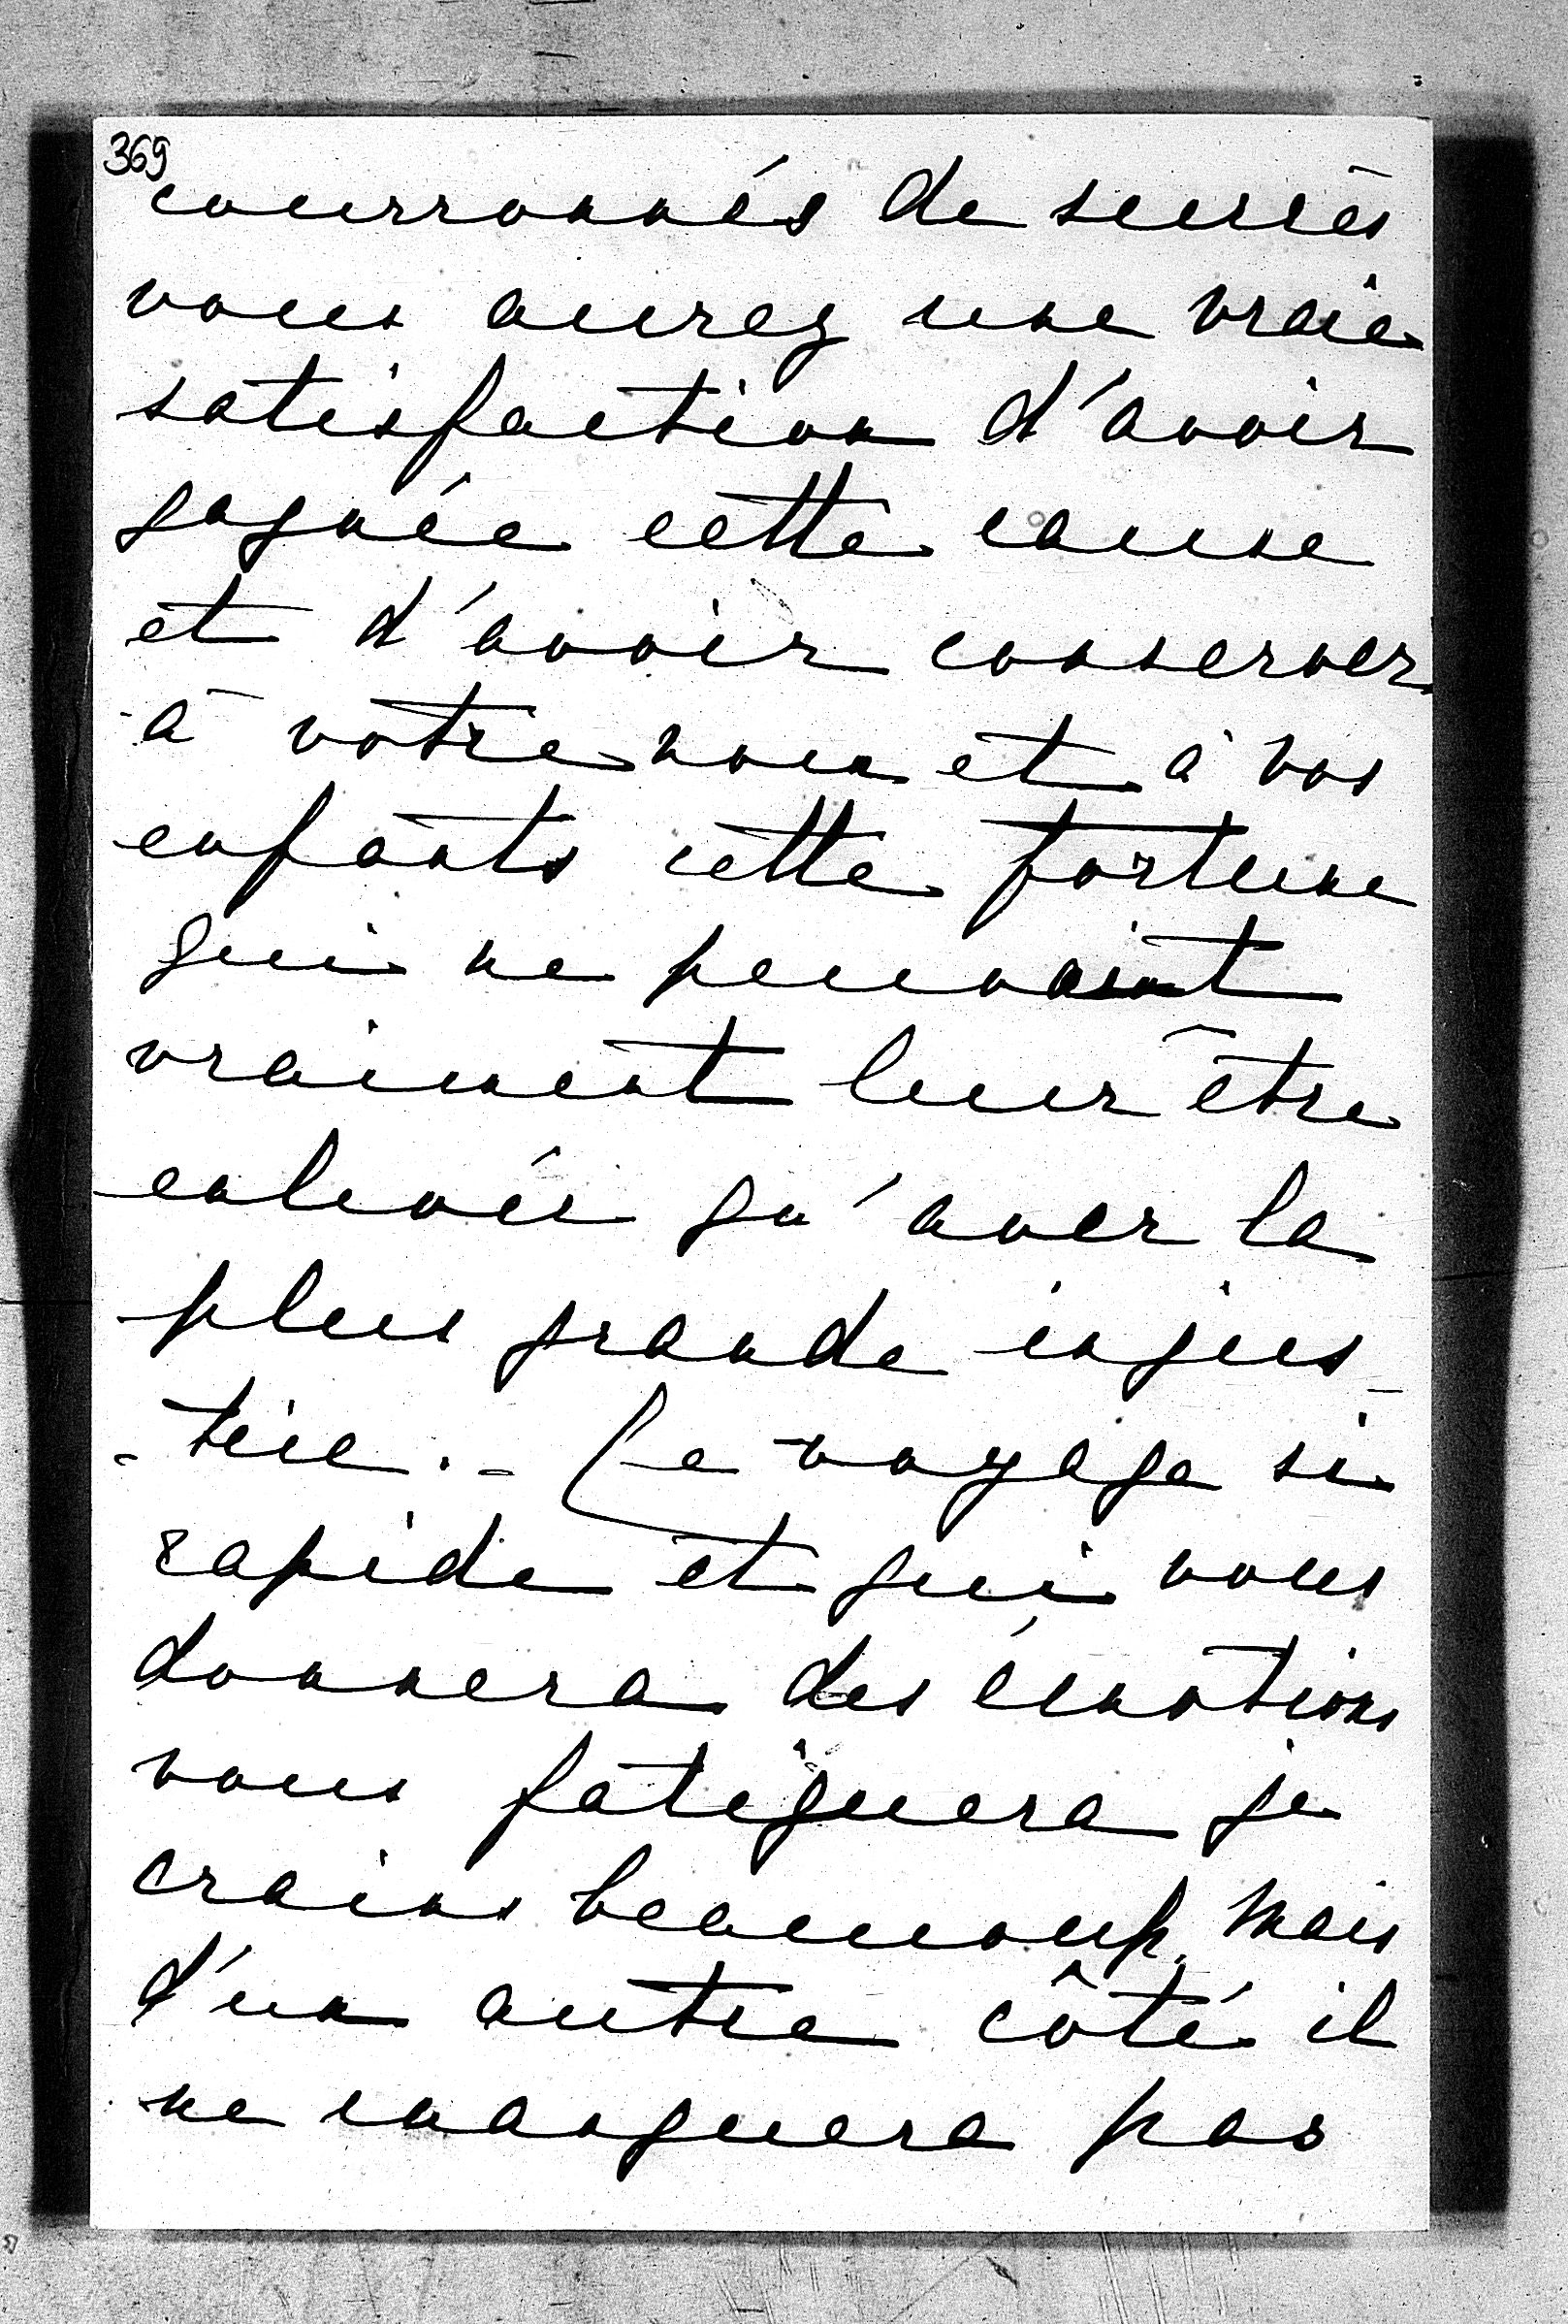 369
courronnés de succès
vous aurez une vraie
satisfaction d'avoir
gagnée cette cause
et d'avoir conserver
à votre nom et à vos
enfants cette fortune
qui ne pouvoint
vraiment leur être
enlevée qu'avec la
plus grande injus-
-tice. - Ce voyage si
rapide et qui vous
donnera des émotions
vous fatiguera je
crains beaucoup, mais
d'un autre côté il
ne manquera pas